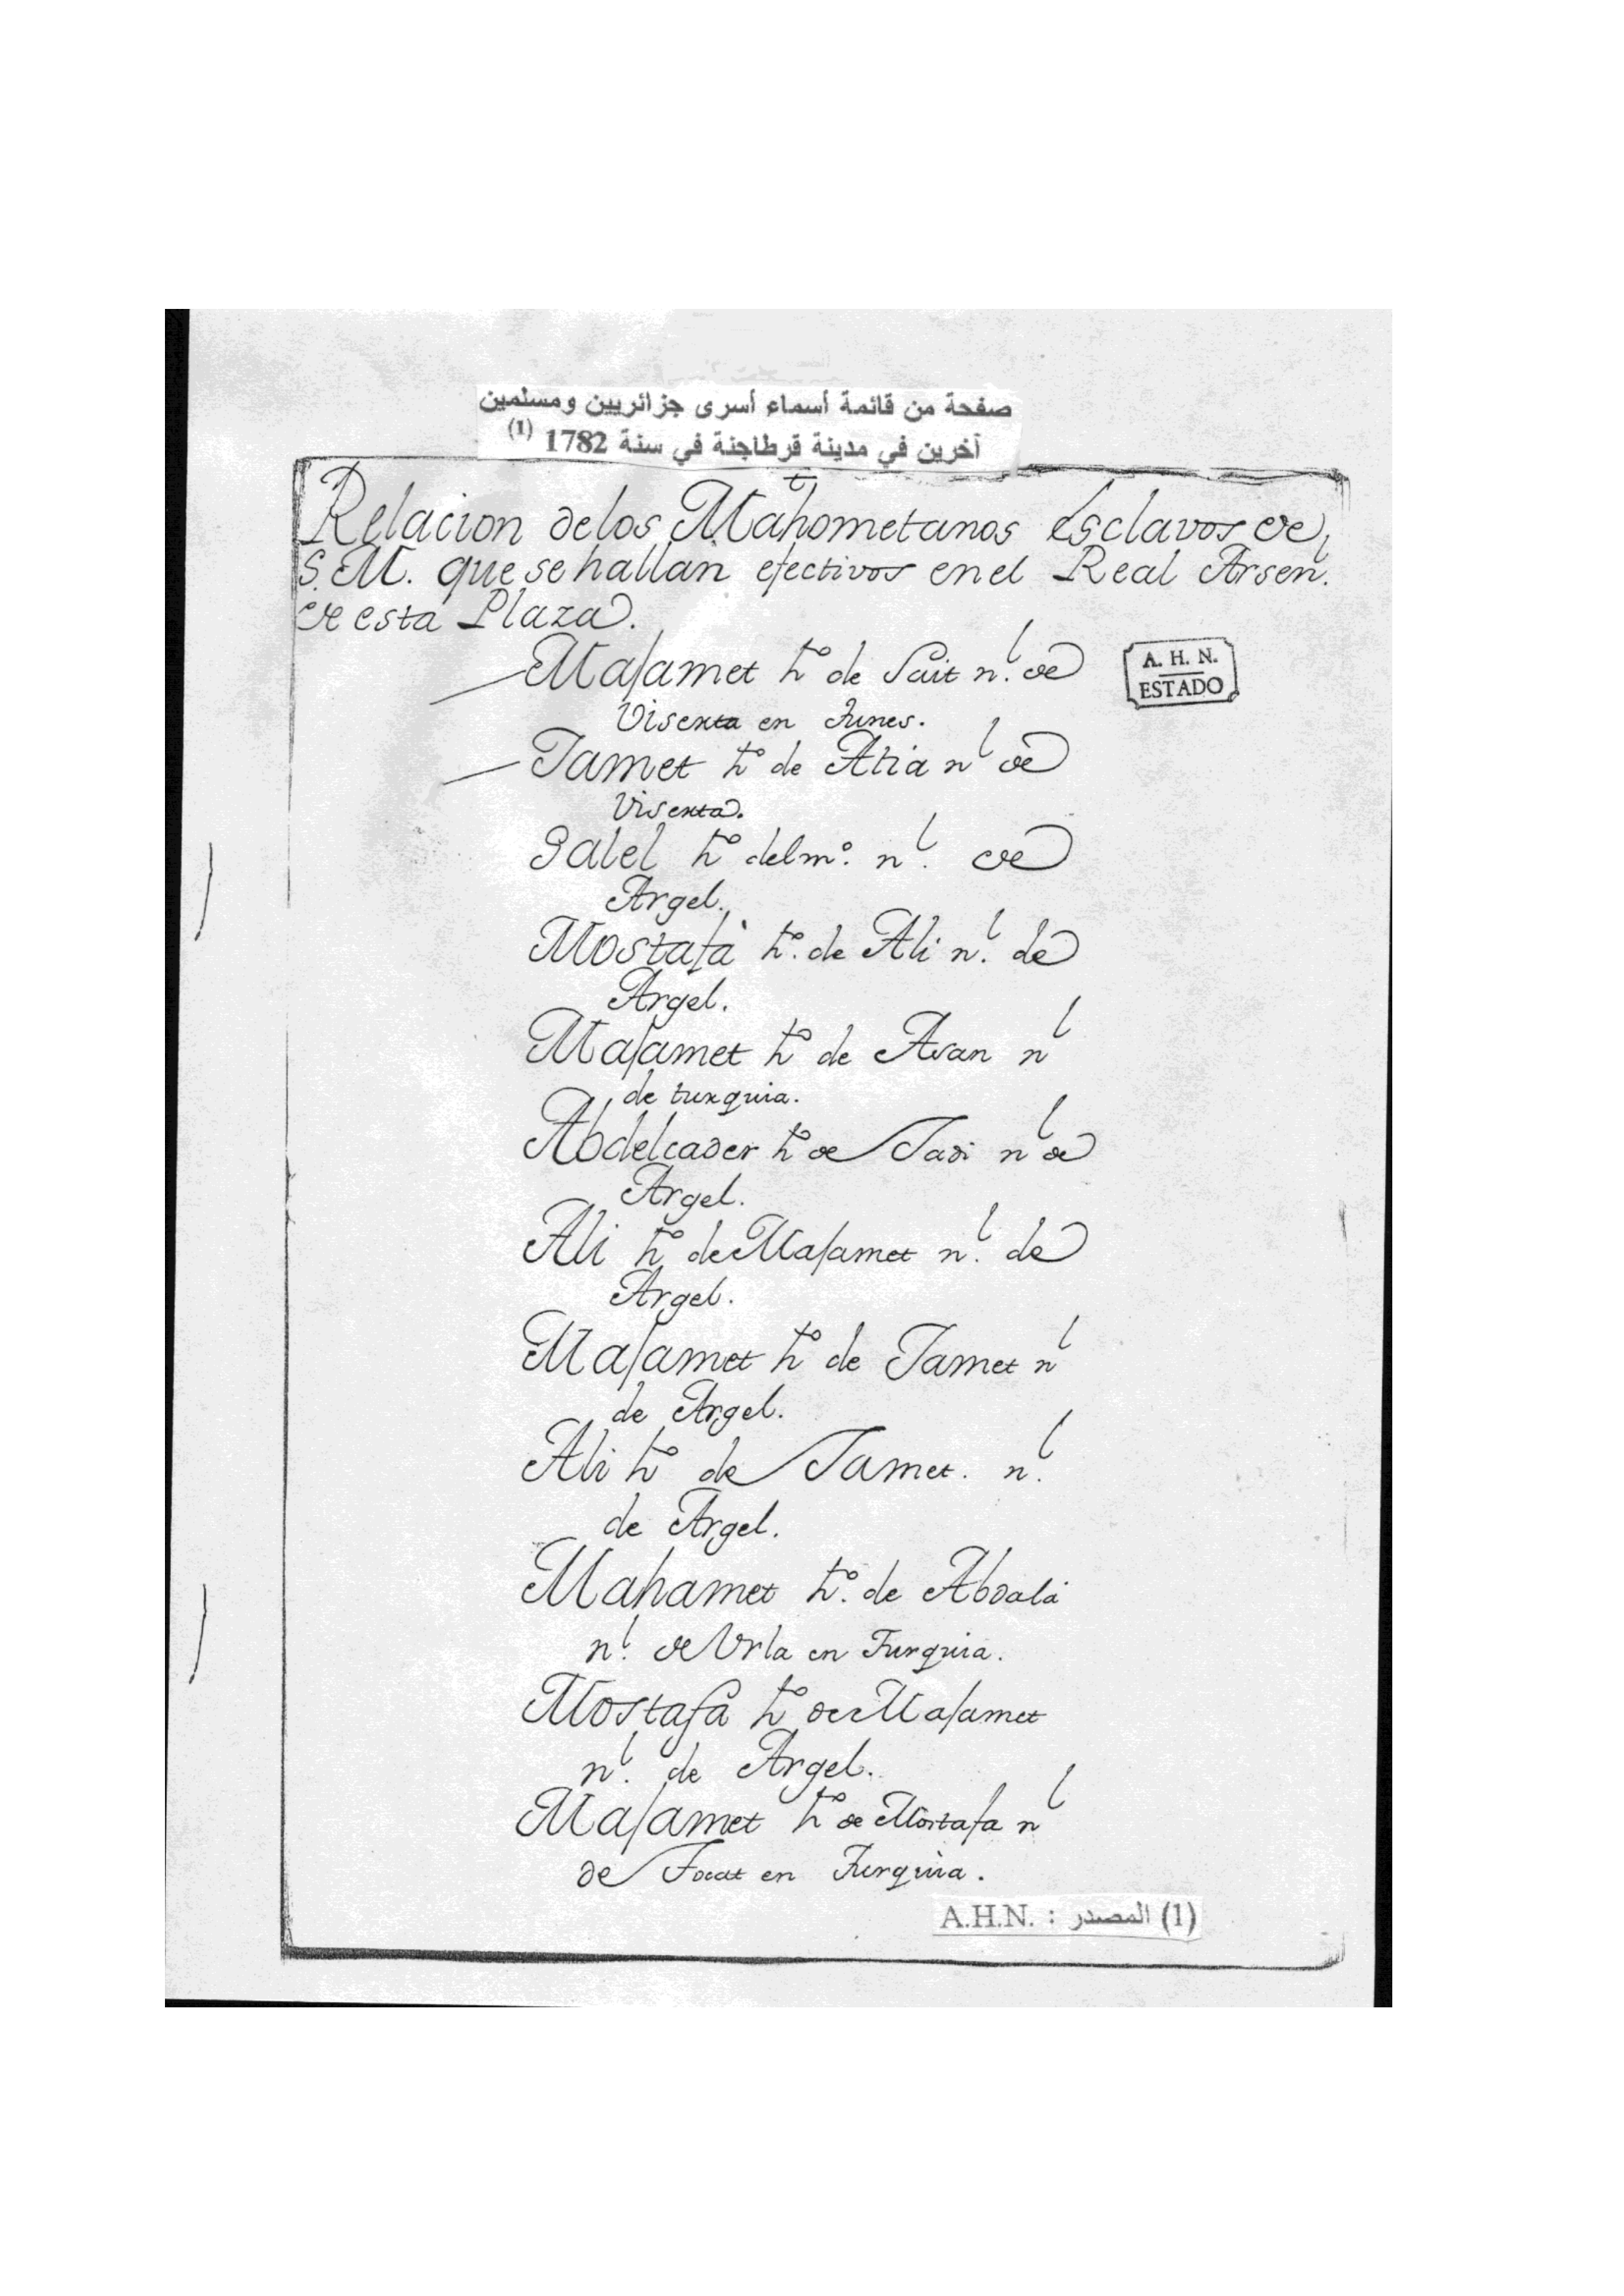 صفحة من قائمة أسماء أسرى جزائريين ومسلمين
آخرين في مدينة قرطاجنة في سنة 1782 (1)
Relacion de los Mahometanos Esclavos de
S. M. que se hallan efectivos en el Real Arsen.l
de esta Plaza.
A. H. N.
ESTADO
Majamet h.o de Sait n.l de
Viserta en Tunes.
Jamet h.o de Atia n.l de
Viserta.
Galel h.o del m.o n.l de
Argel.
Mostafà h.o de Ali n.l de
Argel.
Majamet h.o de Asan n.l
de turquia.
Abdelcader h.o de Jadi n.l de
Argel.
Ali h.o de Majamet n.l de
Argel.
Majamet h.o de Jamet n.l
de Argel.
Ali h.o de Jamet. n.l
de Argel.
Mahamet h.o de Abdalá
n.l de Urla en Turquia.
Mostafá h.o de Majamet
n.l de Argel.
Majamet h.o de Mostafa n.l
de en Turquia.
(1) المصدر : A.H.N.